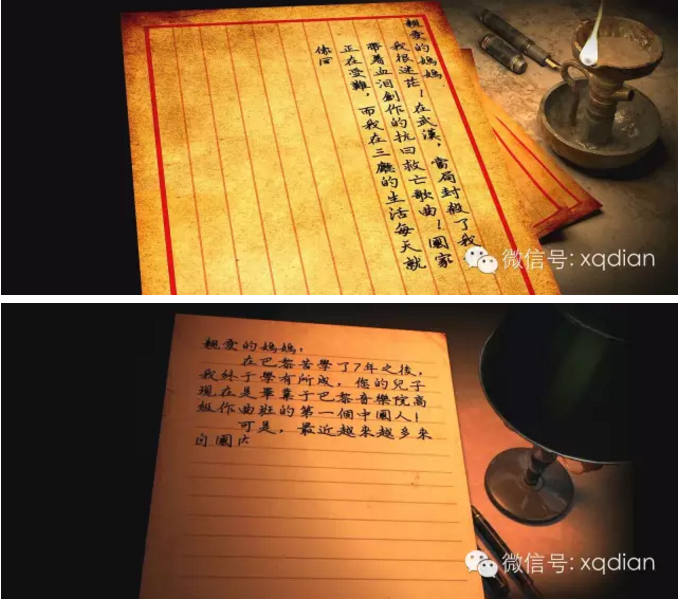 親爱的媽媽,
我很迷茫！在武漢，當局封殺了我
帶着血淚創作的抗日救亡歌曲！國家
正在受難，而我在三廳的生活每天就
像同
微信号: xqdian
親爱的媽媽，
在巴黎苦學了7年之後，
我終于學有所成，您的兒子
現在是畢業于巴黎音樂院高
級作曲班的第一個中國人！
可是，最近越来越多来
自國内
微信号: xqdian